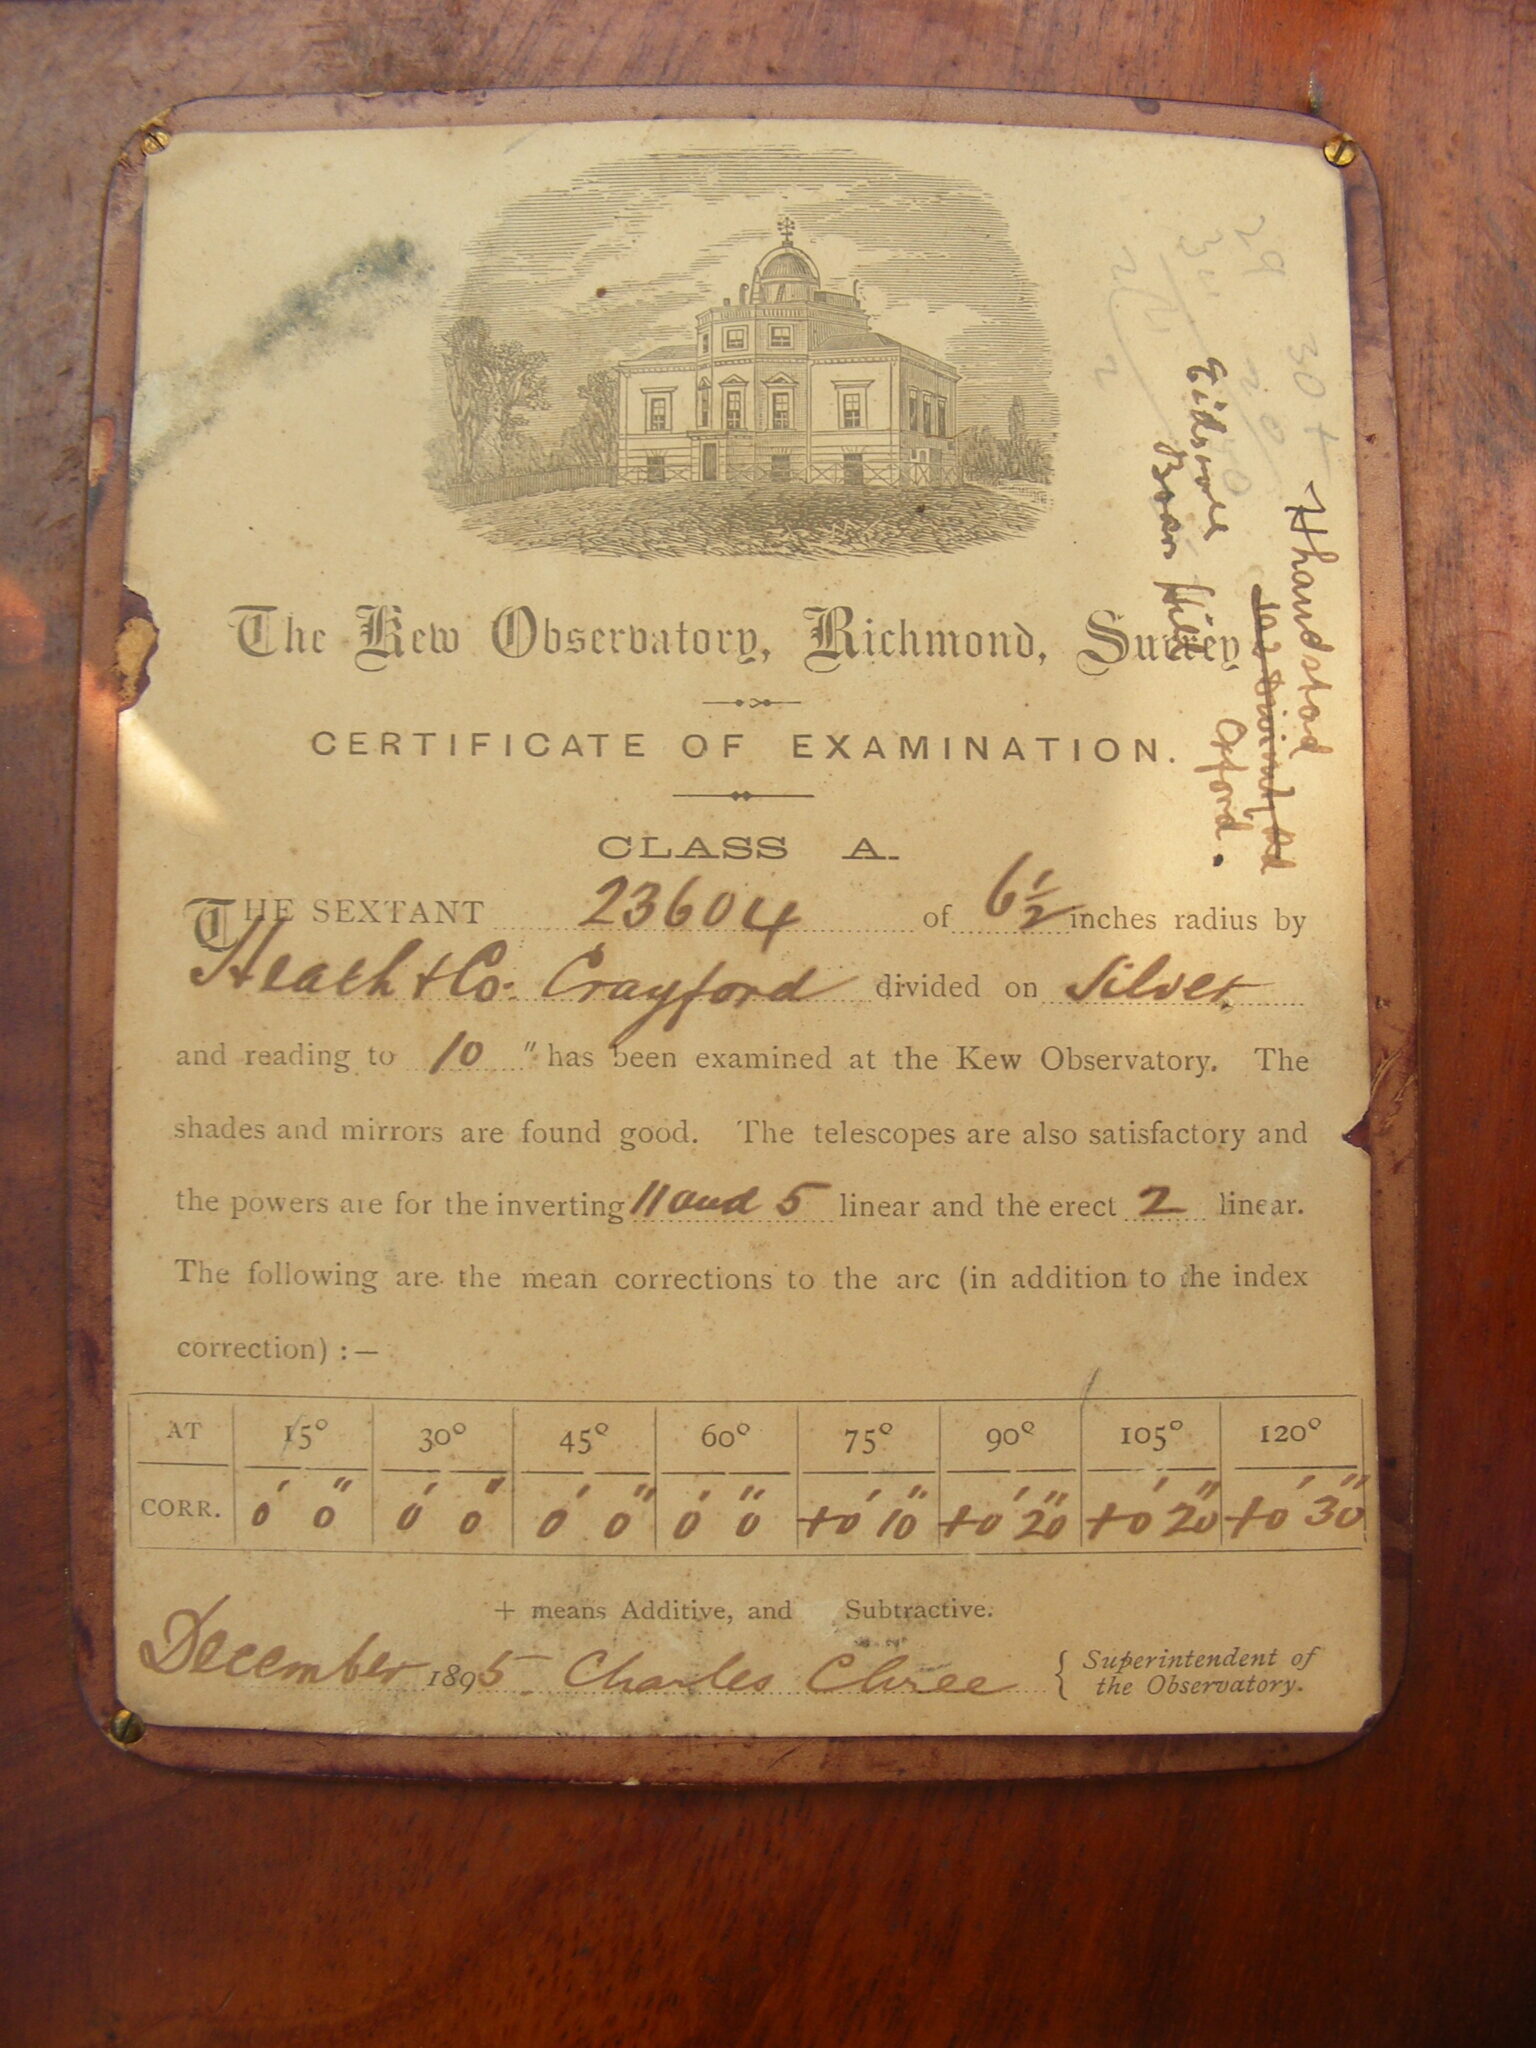 The Kew Observatory, Richmond, Surrey
CERTIFICATE OF EXAMINATION.
CLASS A.
THE SEXTANT 23604 of 6½ inches radius by
Heath & Co. Crayford divided on Silver
and reading to 10 " has been examined at the Kew Observatory. The
shades and mirrors are found good. The telescopes are also satisfactory and
the powers are for the inverting 11 and 5 linear and the erect 2 linear.
The following are the mean corrections to the arc (in addition to the index
correction) :—
AT 15° 30° 45° 60° 75° 90° 105° 120°
CORR. 0' 0" 0' 0" 0' 0" 0' 0" +0' 10" +0' 20" +0' 20" +0' 30"
+ means Additive, and Subtractive.
December 1895. Charles Chree { Superintendent of
the Observatory.
Boars Hill
Oxford.